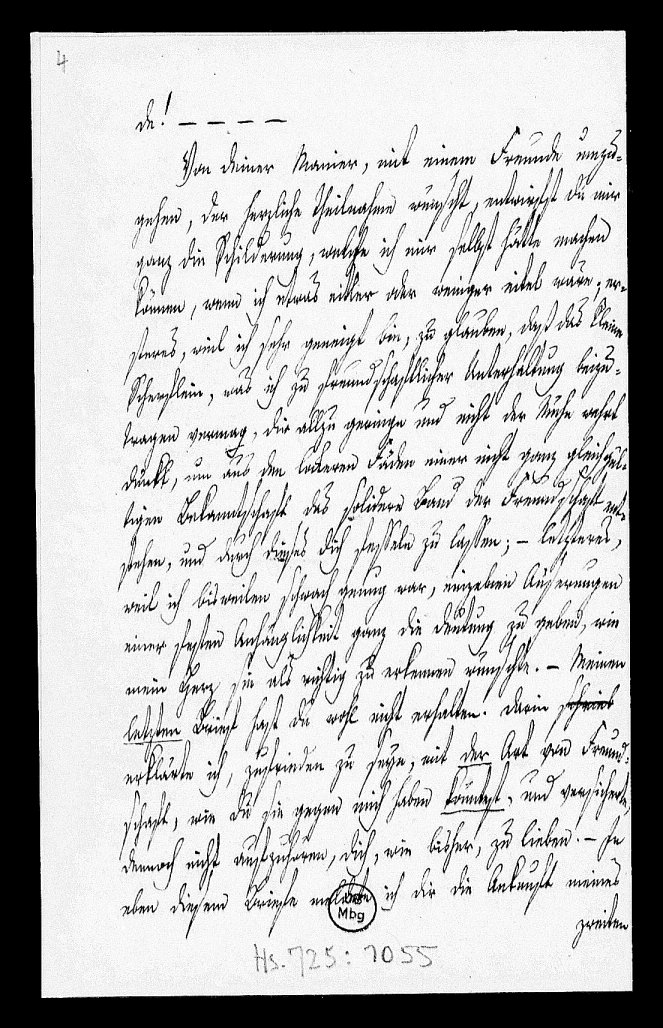 4
de! – – – –
Von deiner Manier, mit einem Freunde umzu-
gehen, der herzliche Theilnahme wünscht, entwirfst du mir
ganz die Schilderung, welche ich mir selbst hätte machen
können, wenn ich etwas eitler oder weniger eitel wäre; er-
steres, weil ich sehr geneigt bin, zu glauben, daß das kleine
Scherflein, was ich zu freundschaftlicher Unterhaltung beizu-
tragen vermag, dir allzu geringe und nicht der Mühe wehrt
dünkt, um aus den lockeren Fäden einer nicht ganz gleichgül-
tigen Bekanntschaft das solidere Band der Freundschaft ent-
stehen, und durch dieses dich fesseln zu lassen; – letzteres,
weil ich bisweilen schwach genug war, einzelnen Äuserungen
einer festen Anhänglichkeit ganz die deutung zu geben, wie
mein Herz sie als richtig zu erkennen wünschte. – Meinen
letzten Brief hast du wohl nicht erhalten. Darin schrieb
erklärte ich, zufrieden zu seyn, mit der Art von Freund-
schaft, wie du sie gegen mich haben könntest, und versicherte,
dennoch nicht aufzuhören, dich, wie bisher, zu lieben. – In
eben diesem Briefe meldete ich dir die Ankunft meines
zweiten
Mbg
Hs. 725: 1055